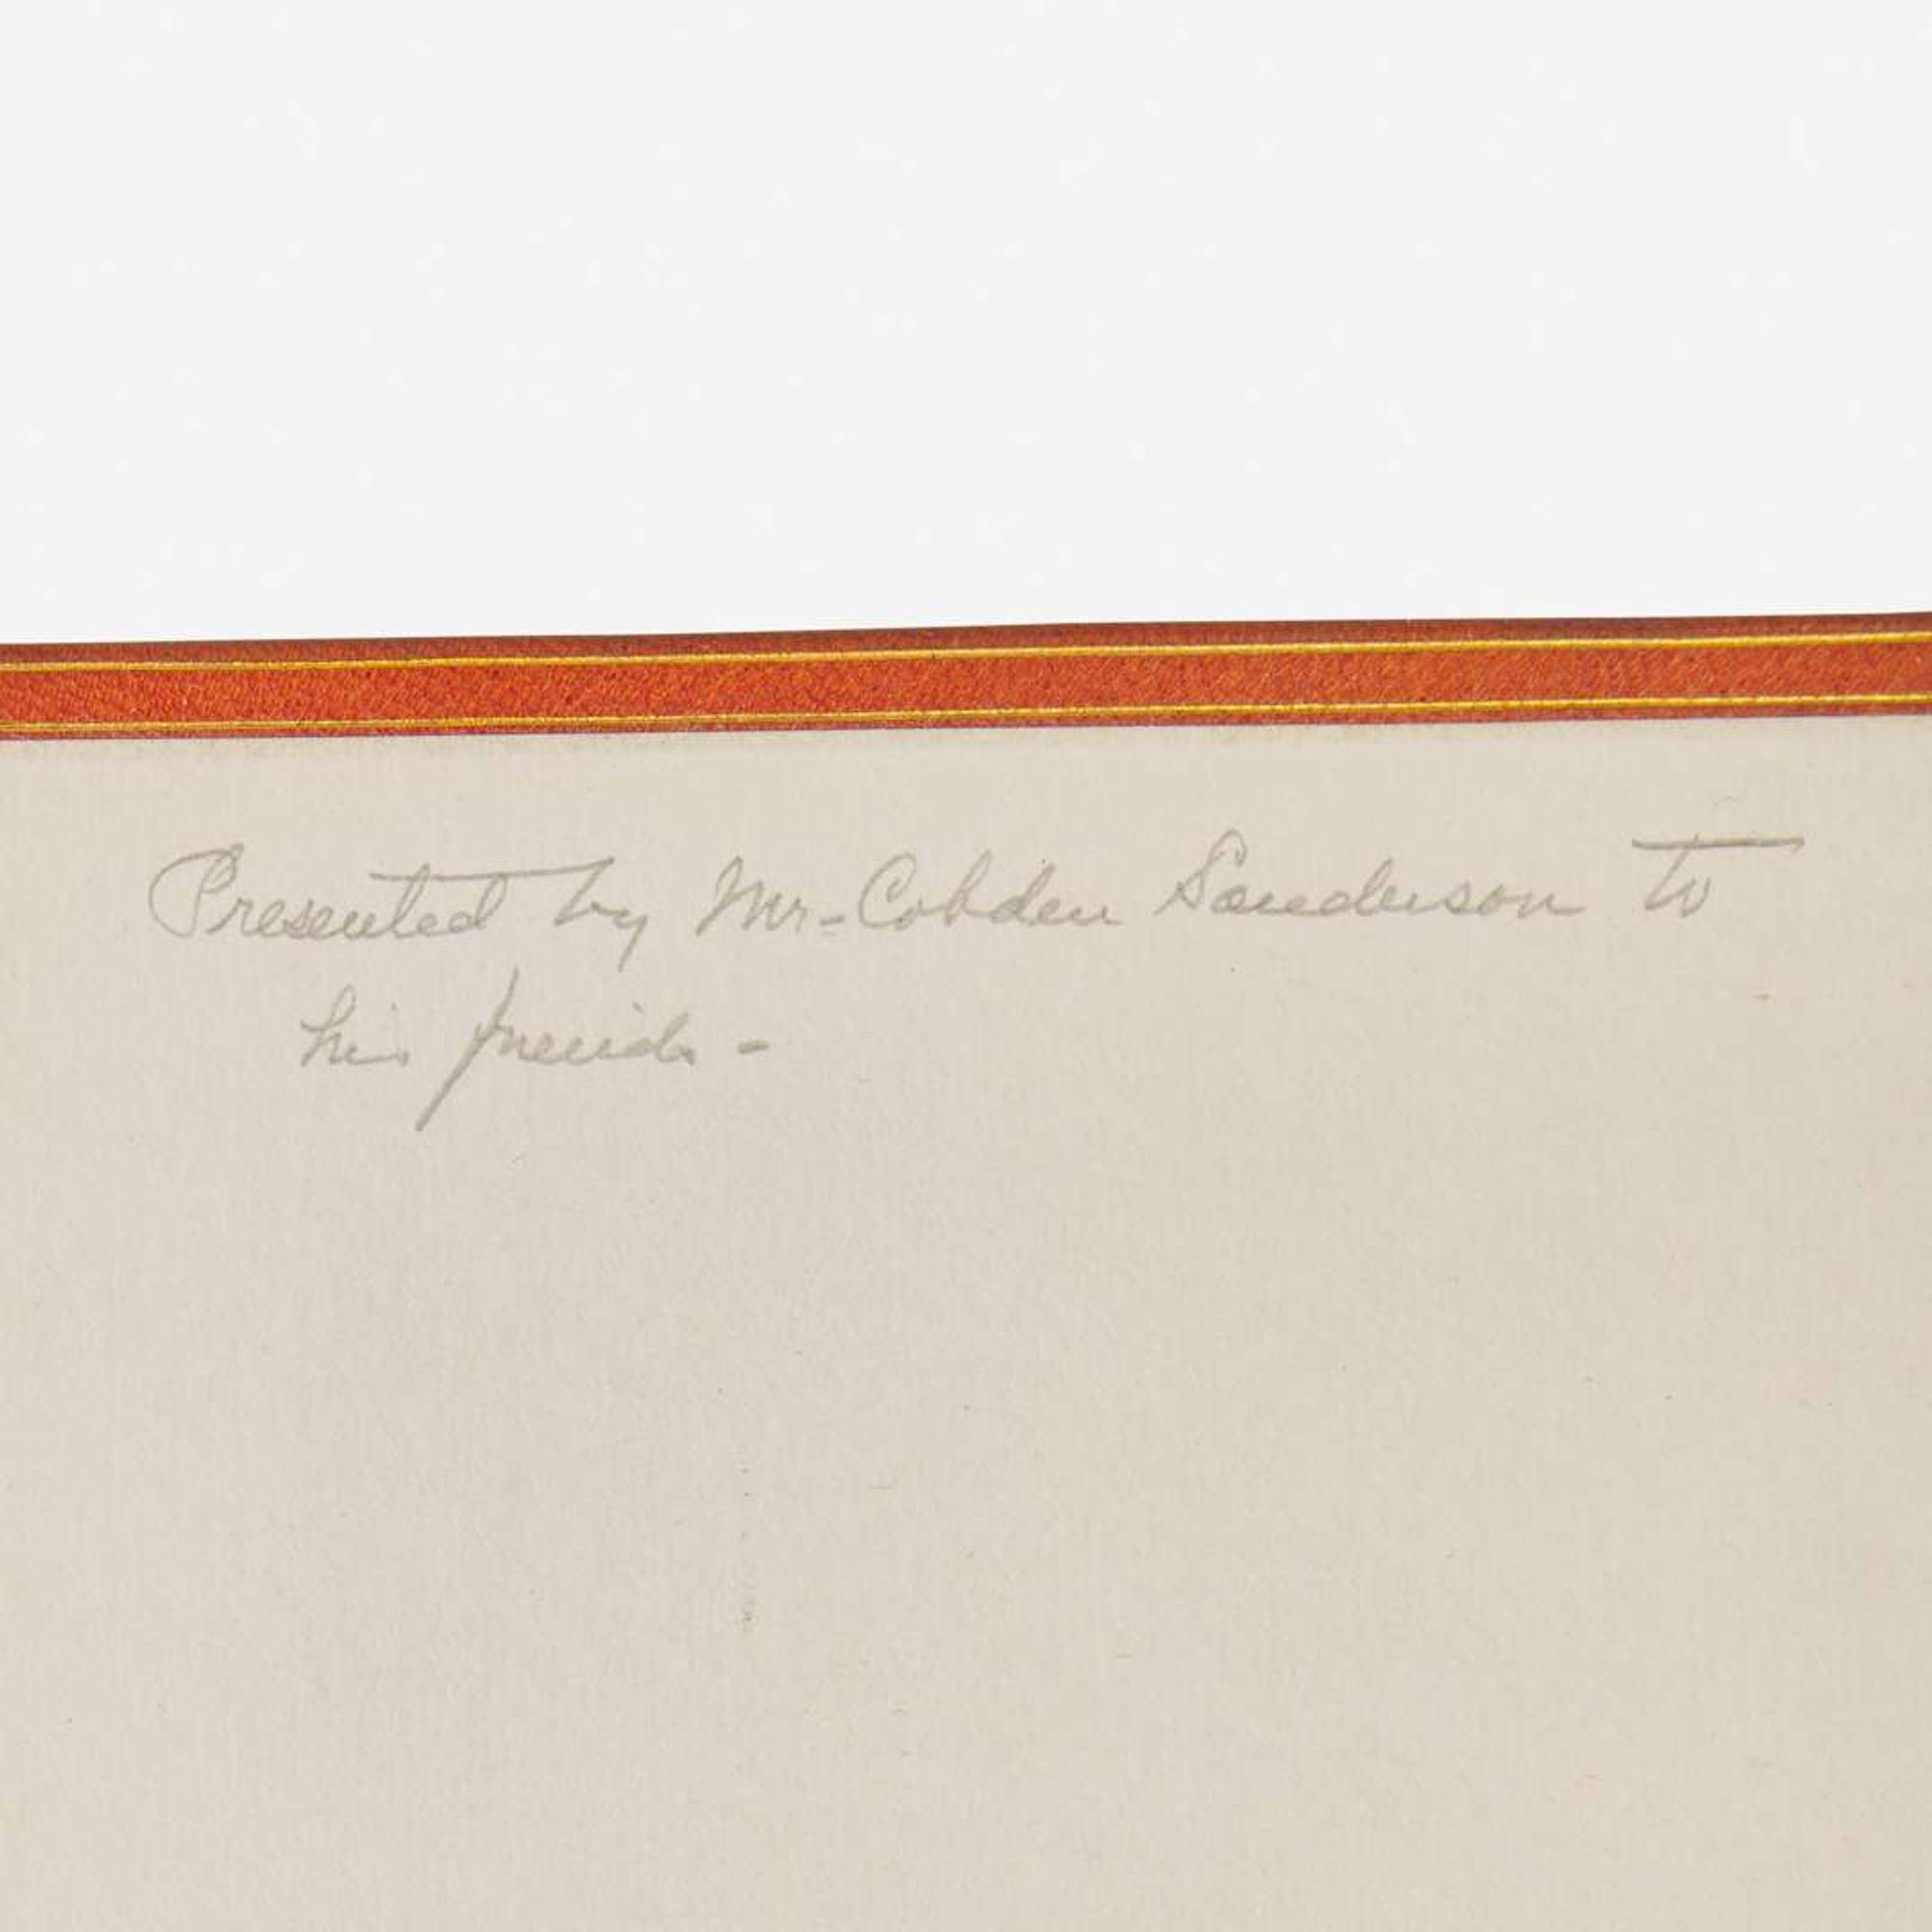 Presented by Mr- Cobden Sanderson to
his friends -